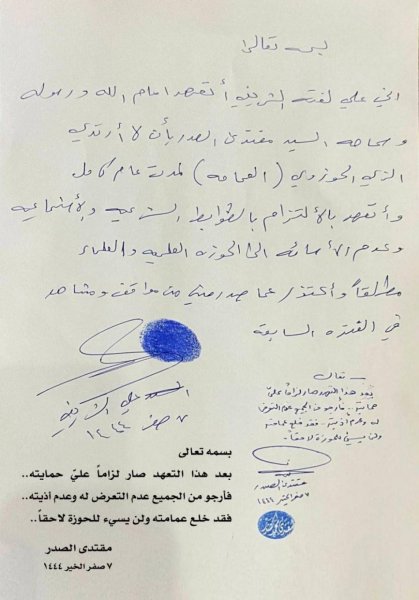 بسمه تعالى
اني علي لفته الشريفي أتعهد امام الله ورسوله
وسماحه السيد مقتدى الصدر بأن لا أرتدي
الزي الحوزوي (العمامه) لمدت عام كامل
وأتعهد بالألتزام بالضوابط الشرعيه والأجتماعيه
وعدم الأسائه الى الحوزه العلميه والعلماء
مطلقاً وأعتذر عما صدر مني من مواقف ومشاهد
في الفتره السابقه
السيد علي الشريفي
٧ صفر ١٤٤٤
تعالى
بعد هذا التعهد صار لزاماً عليّ
حمايته.. فأرجو من الجميع عدم التعرض
له وعدم أذيته.. فقد خلع عمامته
ولن يسيء للحوزة لاحقاً..
مقتدى الصدر
٧ صفر الخير ١٤٤٤
بسمه تعالى
بعد هذا التعهد صار لزاماً عليّ حمايته..
فأرجو من الجميع عدم التعرض له وعدم أذيته..
فقد خلع عمامته ولن يسيء للحوزة لاحقاً..
مقتدى الصدر
٧ صفر الخير ١٤٤٤